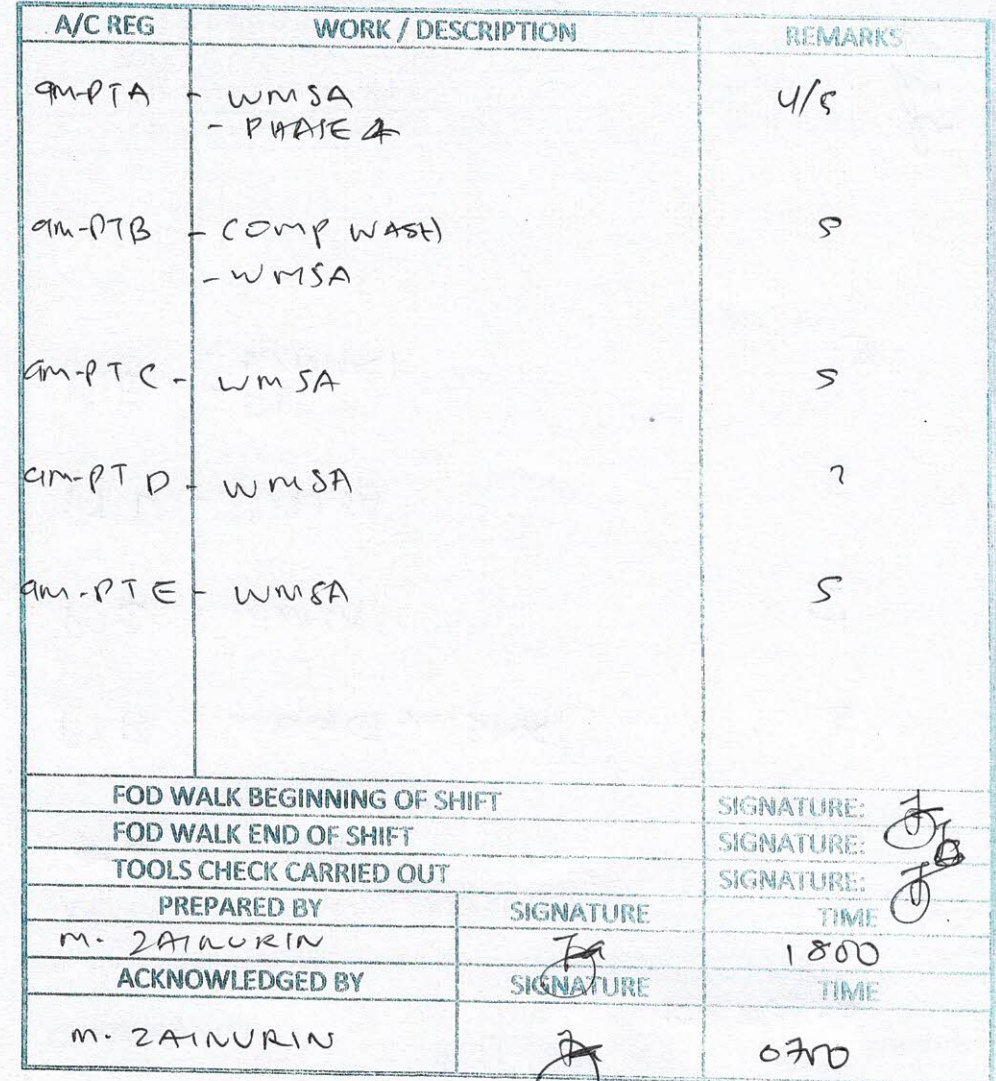 A/C REG WORK / DESCRIPTION REMARKS
9M-PTA - WMSA U/S
- PHASE 4
9M-PTB - COMP WASH S
- WMSA
9M-PTC - WMSA S
9M-PTD - WMSA ?
9M-PTE - WMSA S
FOD WALK BEGINNING OF SHIFT SIGNATURE:
FOD WALK END OF SHIFT SIGNATURE:
TOOLS CHECK CARRIED OUT SIGNATURE:
PREPARED BY SIGNATURE TIME
M. ZAINURIN 1800
ACKNOWLEDGED BY SIGNATURE TIME
M. ZAINURIN 0700